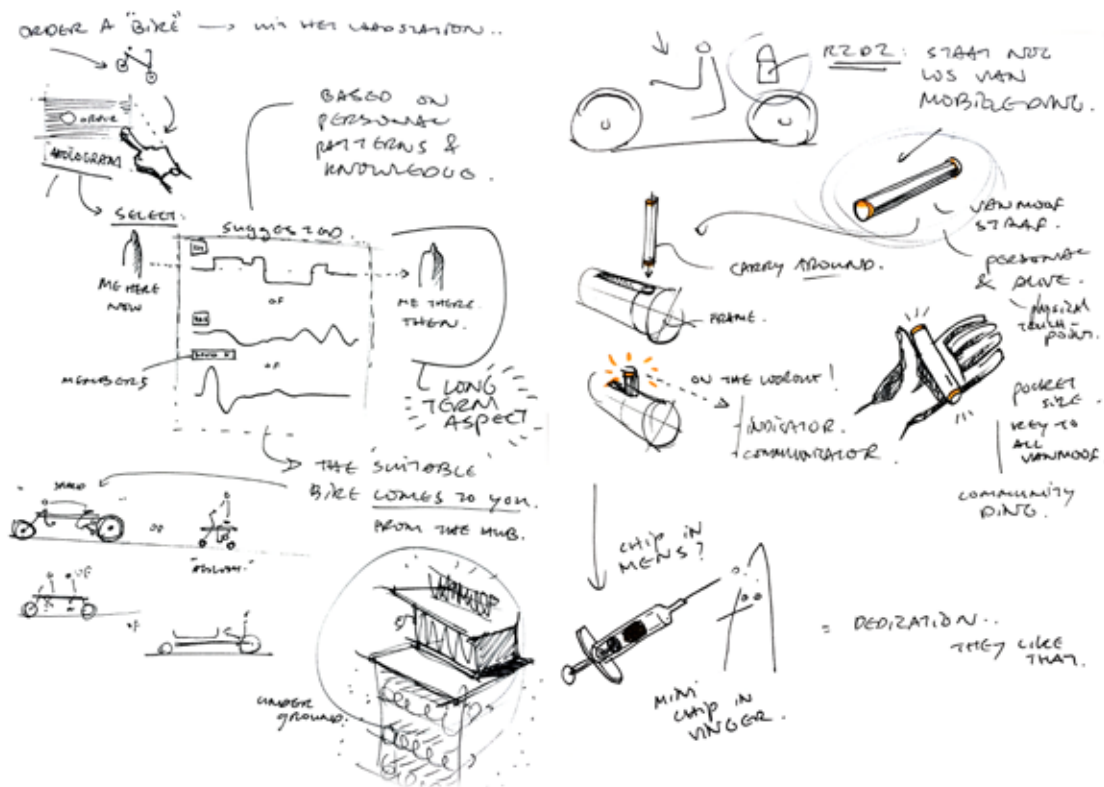 ORDER A "BIKE" → UIT HET LAADSTATION..
ORDER
HOLOGRAM
SELECT:
ME HERE
NOW
BASED ON
PERSONAL
PATTERNS &
KNOWLEDGE.
SUGGESTED.
OF
OF
ME THERE.
THEN.
MEMBERS
LONG
TERM
ASPECT
THE "SUITABLE"
BIKE COMES TO YOU.
FROM THE HUB.
OF
OF
VANMOOF
UNDER
GROUND.
R2D2: STAAT NOG
LOS VAN
MOBIELEDING.
VANMOOF
STAAF.
PERSONAL
& ALIVE.
PHYSICAL
TOUCH
POINT.
CARRY AROUND.
FRAME.
ON THE LOOKOUT!
- INDICATOR.
- COMMUNICATOR.
POCKET
SIZE.
KEY TO
ALL
VANMOOF
COMMUNITY
DING.
CHIP IN
MENS?
MINI
CHIP IN
VINGER.
= DEDICATION..
THEY LIKE
THAT.